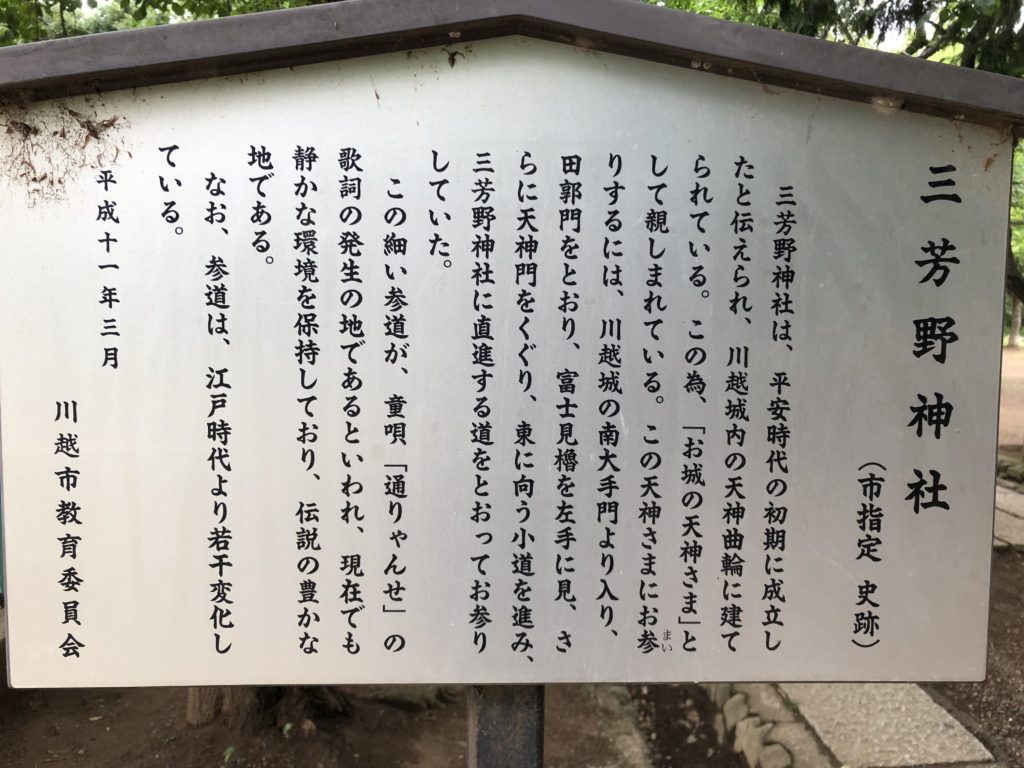 三芳野神社
（市指定 史跡）
三芳野神社は、平安時代の初期に成立し
たと伝えられ、川越城内の天神曲輪に建て
られている。この為、「お城の天神さま」と
して親しまれている。この天神さまにお参まい
りするには、川越城の南大手門より入り、
田郭門をとおり、富士見櫓を左手に見、さ
らに天神門をくぐり、東に向う小道を進み、
三芳野神社に直進する道をとおってお参り
していた。
この細い参道が、童唄「通りゃんせ」の
歌詞の発生の地であるといわれ、現在でも
静かな環境を保持しており、伝説の豊かな
地である。
なお、参道は、江戸時代より若干変化し
ている。
平成十一年三月
川越市教育委員会